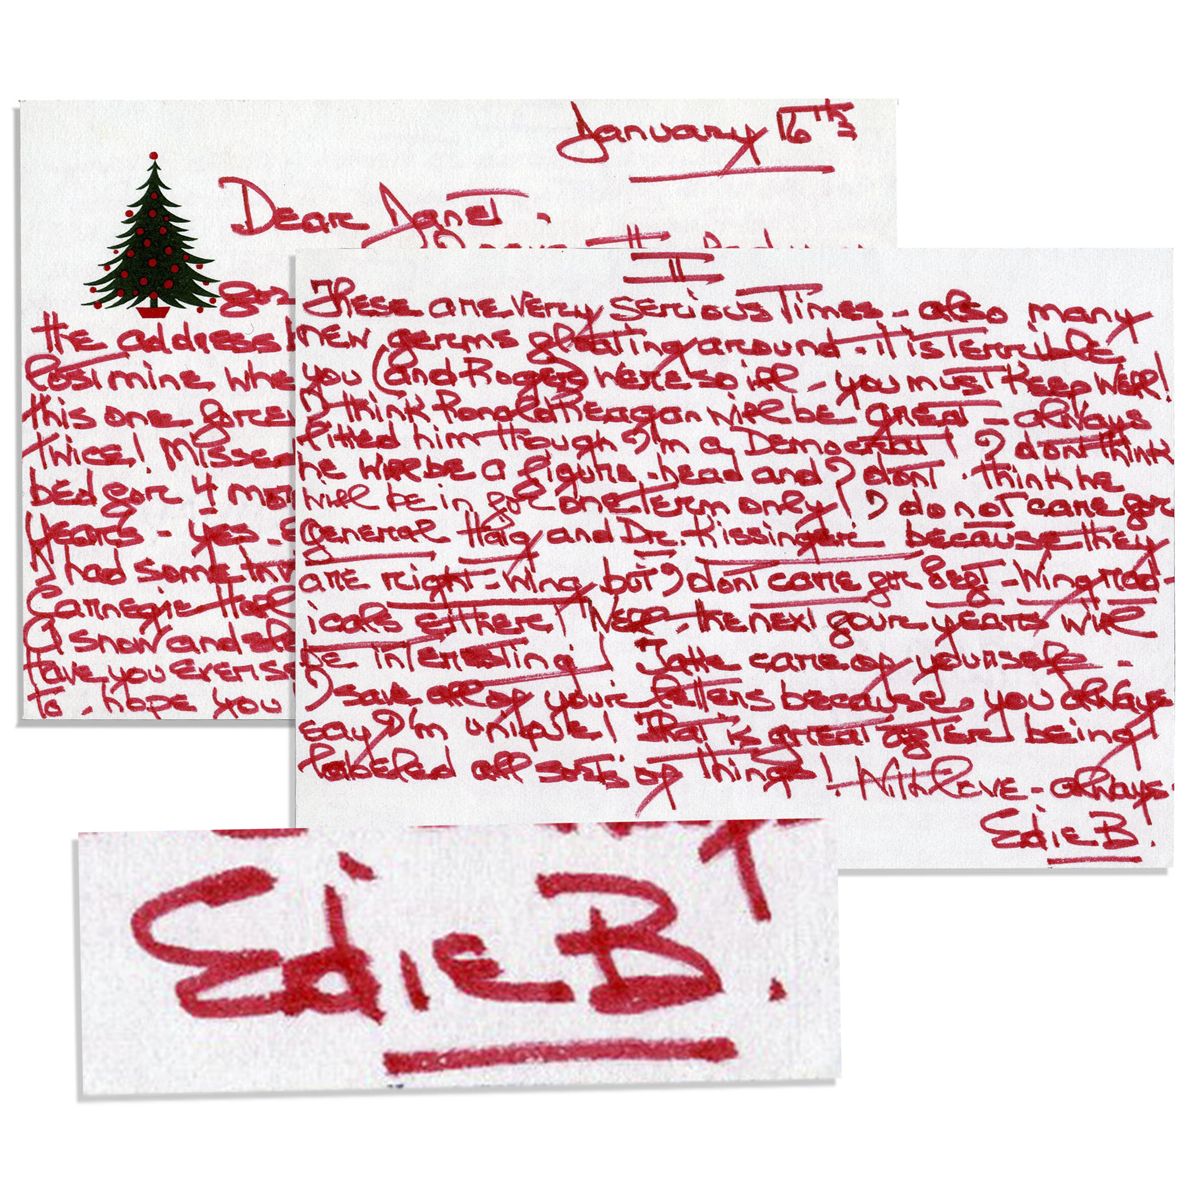 January 16th
Dear Janet -
for
the address
lost mine when
this one forever
twice! Missed
bed for 4 mon
years - yes -
I had some
Carnegie Hall
A snow and
Have you ever
to - hope you
II
These are very serious Times - also many
new germs floating around. it is Terrible
you (and Roger) were so ill - you must keep well!
I think Ronald Reagan will be great - always
liked him though I'm a Democrat! I don't think
he will be a figure-head and I dont think he
will be in for one term only! I do not care for
General Haig and Dr. Kissinger because they
are right-wing but I dont care for left-wing rad-
icals either! Well - the next four years will
be interesting! Take care of yourself -
I save all of your letters because you always
say I'm unique! That is great after being
labeled all sorts of things! With love - always -
Edie B!
Edie B!